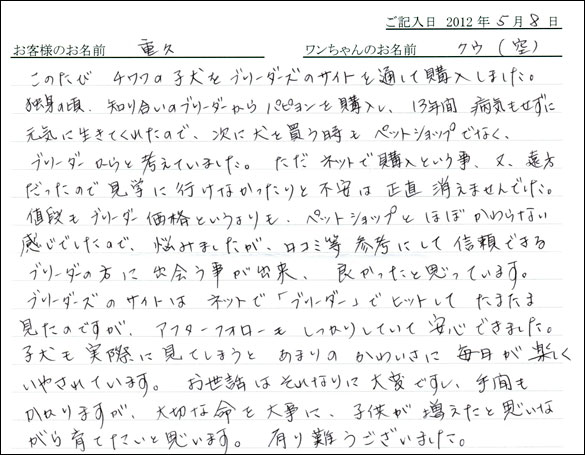 ご記入日 2012年5月8日
お客様のお名前 重久 ワンちゃんのお名前 クウ(空)
このたび チワワの子犬をブリーダーズのサイトを通して購入しました。
独身の頃、知り合いのブリーダーから パピヨンを購入し、13年間 病気もせずに
元気に生きてくれたので、次に犬を買う時も ペットショップでなく、
ブリーダーからと考えていました。ただ ネットで購入という事、又、遠方
だったので見学に行けなかったりと不安は正直 消えませんでした。
値段もブリーダー価格というよりも、ペットショップとほぼかわらない
感じでしたので、悩みましたが、口コミ等 参考にして信頼できる
ブリーダの方に出会う事が出来、良かったと思っています。
ブリーダーズのサイトは ネットで「ブリーダー」でヒットして たまたま
見たのですが、アフターフォローも しっかりしていて 安心できました。
子犬も 実際に見てしまうと あまりのかわいさに 毎日が楽しく
いやされています。 お世話はそれなりに大変ですし、手間も
かかりますが、大切な命を大事に、子供が増えたと思いな
がら育てたいと思います。有り難うございました。